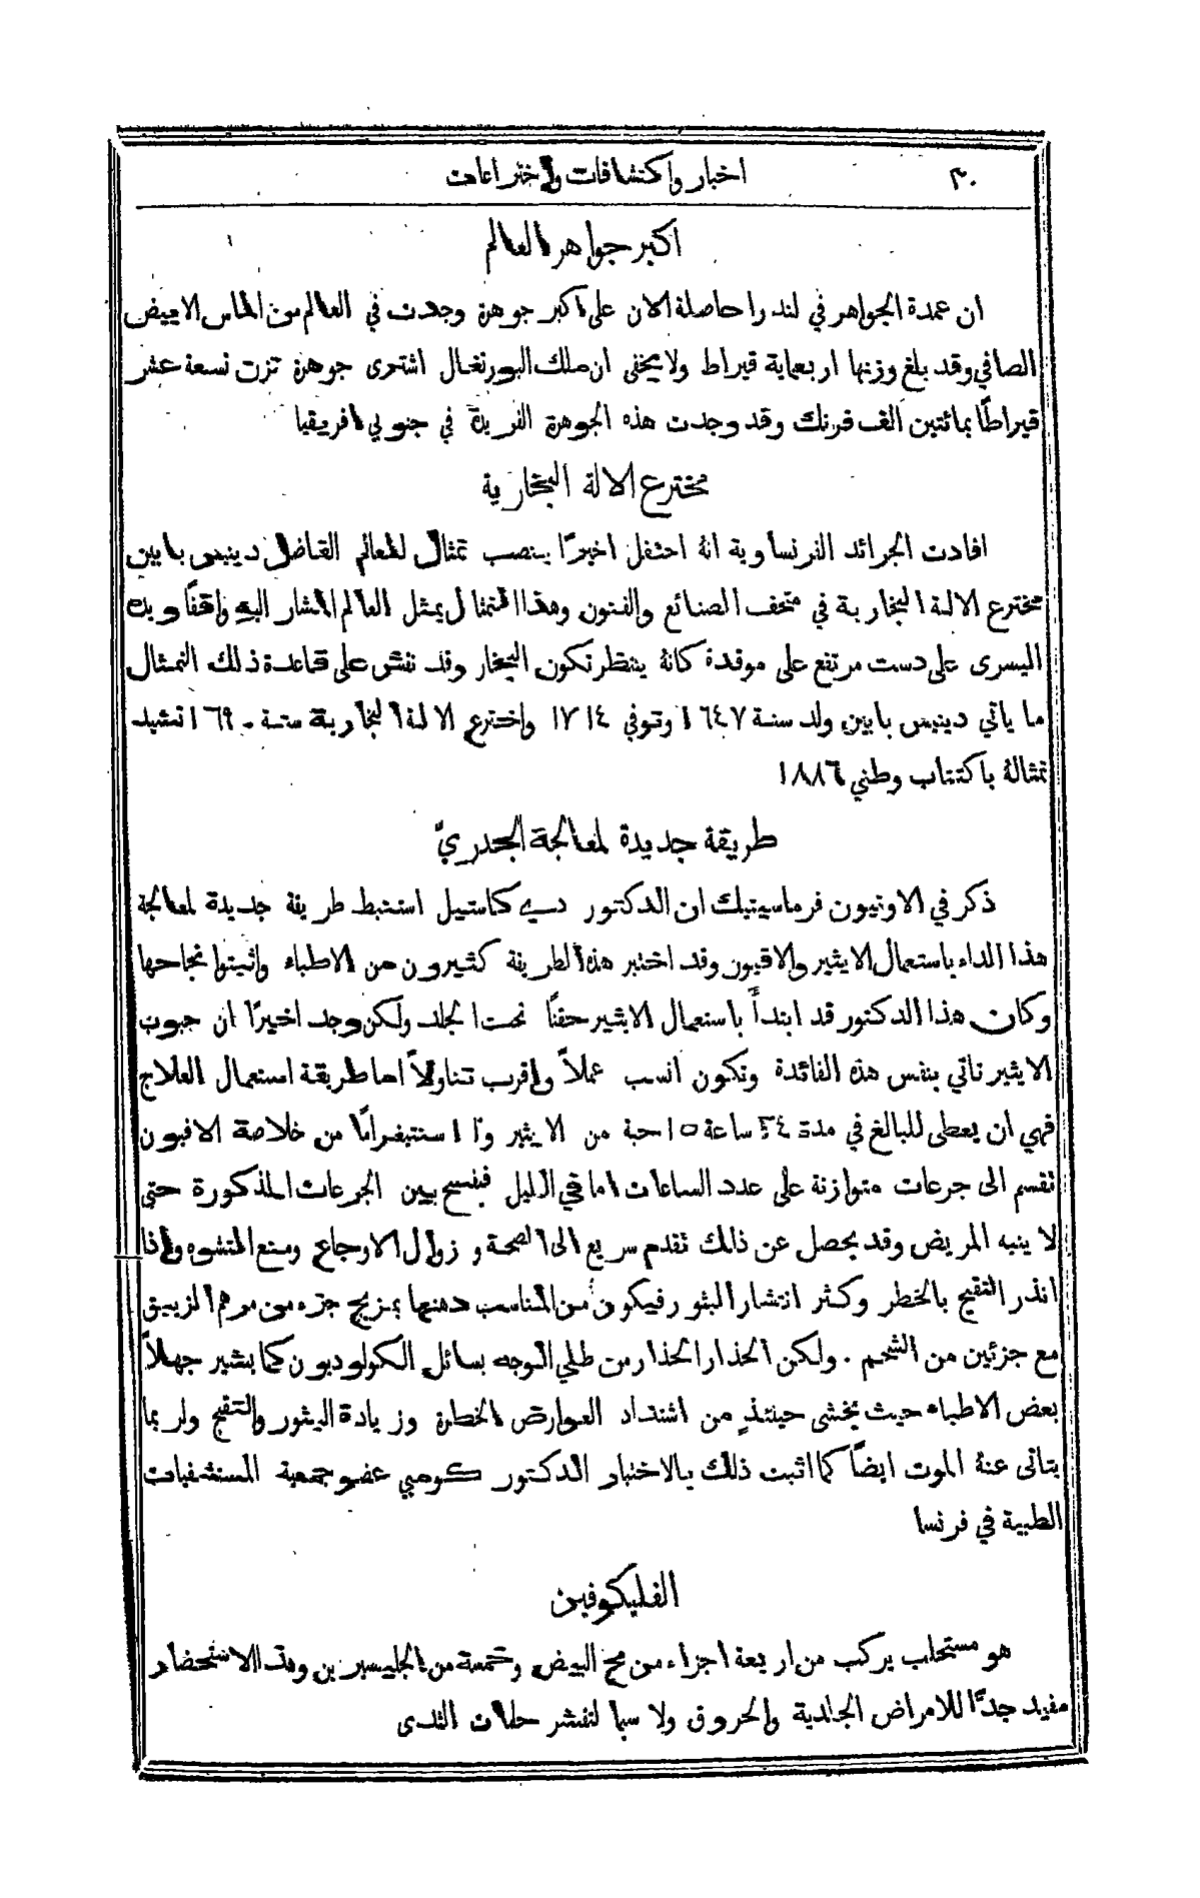 ٣٠ اخبار واكتشافات واختراعات
اكبر جواهر العالم
ان عمدة الجواهر في لندرا حاصلة الان على اكبر جوهرة وجدت في العالم من الماس الابيض
الصافي وقد بلغ وزنها اربعماية قيراط ولا يخفى ان ملك البورتغال اشترى جوهرة تزن تسعة عشر
قيراطًا بمائتين الف فرنك وقد وجدت هذه الجوهرة الفريدة في جنوبي افريقيا
مخترع الالة البخارية
افادت الجرائد الفرنساوية انهُ احتفل اخيرًا بنصب تمثال للعالم الفاضل دينيس بابين
مخترع الالة البخارية في متحف الصنائع والفنون وهذا التمثال يمثل العالم المشار اليه واقفًا ويده
اليسرى على دست مرتفع على موقدة كانهُ ينتظر تكون البخار وقد نقش على قاعدة ذلك التمثال
ما ياتي دينيس بابين ولد سنة ١٦٤٧ وتوفي ١٧١٤ واخترع الالة البخارية سنة ١٦٩٠ تشيد
تمثالهُ باكتتاب وطني ١٨٨٦
طريقة جديدة لمعالجة الجدريّ
ذكر في الاونيون فرماسيتيك ان الدكتور دي كاستيل استنبط طريقة جديدة لمعالجة
هذا الداء باستعمال الايثير والافيون وقد اختبر هذه الطريقة كثيرون من الاطباء واثبتوا نجاحها
وكان هذا الدكتور قد ابتدأ باستعمال الايثير حقنًا تحت الجلد ولكن وجد اخيرًا ان حبوب
الايثير تاتي بنفس هذه الفائدة وتكون انسب عملاً واقرب تناولاً اما طريقة استعمال العلاج
فهي ان يعطى للبالغ في مدة ٢٤ ساعة ١٥ حبة من الايثير و١ استتيغرامًا من خلاصة الافيون
تقسم الى جرعات متوازنة على عدد الساعات اما في الليل فيفسح بين الجرعات المذكورة حتى
لا ينبه المريض وقد يحصل عن ذلك تقدم سريع الى الصحة و زوال الاوجاع ومنع التشوه واذا
انذر التقيح بالخطر وكثر انتشار البثور فيكون من المناسب دهنها بمزيج جزء من مرهم الزيبق
مع جزئين من الشحم . ولكن الحذار الحذار من طلي الوجه بسائل الكولوديون كما يشير جهلاً
بعض الاطباء حيث يخشى حينئذٍ من اشتداد العوارض الخطرة وزيادة البثور والتقيح ولربما
يتاتى عنهُ الموت ايضًا كما اثبت ذلك بالاختبار الدكتور كومبي عضو جمعية المستشفيات
الطبية في فرنسا
الفليكوفين
هو مستحلب يركب من اربعة اجزاء من مح البيض وخمسة من الجليسيرين وهذا الاستحضار
مفيد جدًّا للامراض الجلدية والحروق ولا سيما لتقشر حلمات الثدى